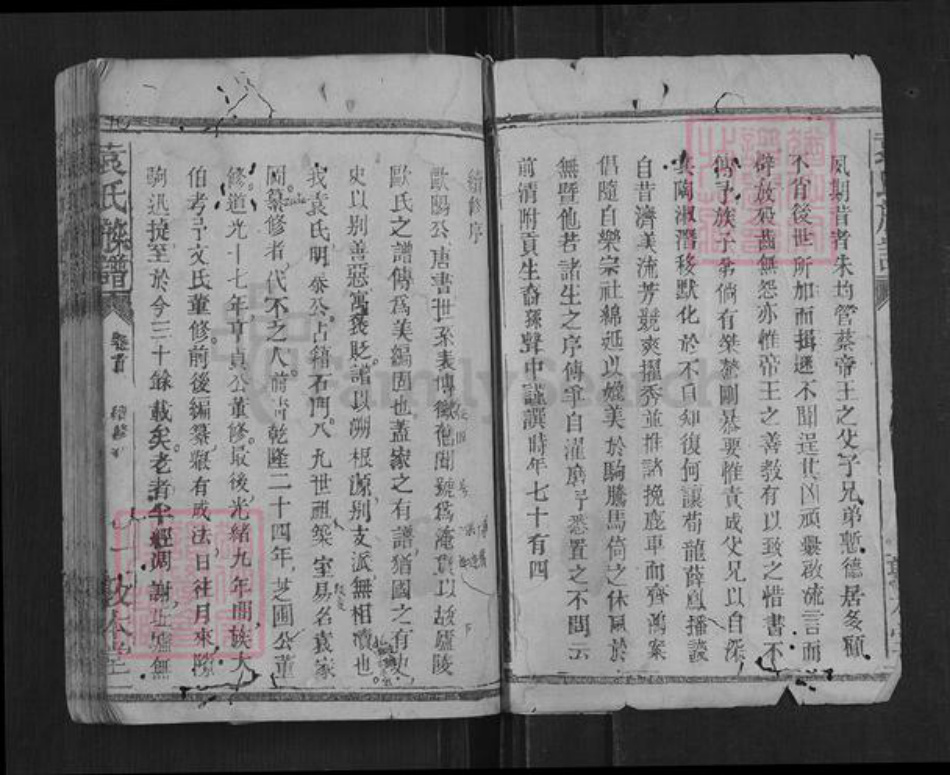 夙期昔者朱均管蔡帝王之父子兄弟慙德居多顧
不肖後世所加而揖遜不聞逞其凶頑釁啟流言而
辟放殺囓無怨亦惟帝王之善教有以致之惜書不
傳予族子弟倘有桀驁剛暴要惟責成父兄以自深
其陶淑潛移默化於不自知復何讓荀龍薛鳳播談
自昔濟美流芳競爽擢秀並推諸挽鹿車而齊鴻案
倡隨自樂宗社綿延以媲美於駒騰馬倚之休風於
無暨他若諸生之序傳爭自濯磨予悉置之不問云
前清附貢生裔孫聲中謹譔時年七十有四
續修序
歐陽公唐書世系表傳徵
歐氏之譜傳為美編固也蓋家之有譜猶國之有史
史以別善惡寓褒貶譜以溯根源別支派無相瀆也
我袁氏明泰公占籍石門八九世祖築室易名袁家
圍纂修者代不乏人前清乾隆二十四年芝圃公董
修道光十七年亨貞公董修最後光緒九年閤族大
伯考予文氏董修前後編纂 有成法日往月來隙
駒迅捷至於今三十餘載矣老者半經凋謝 無
袁氏族譜
卷首
續修序
一
敦本堂
FamilySearch